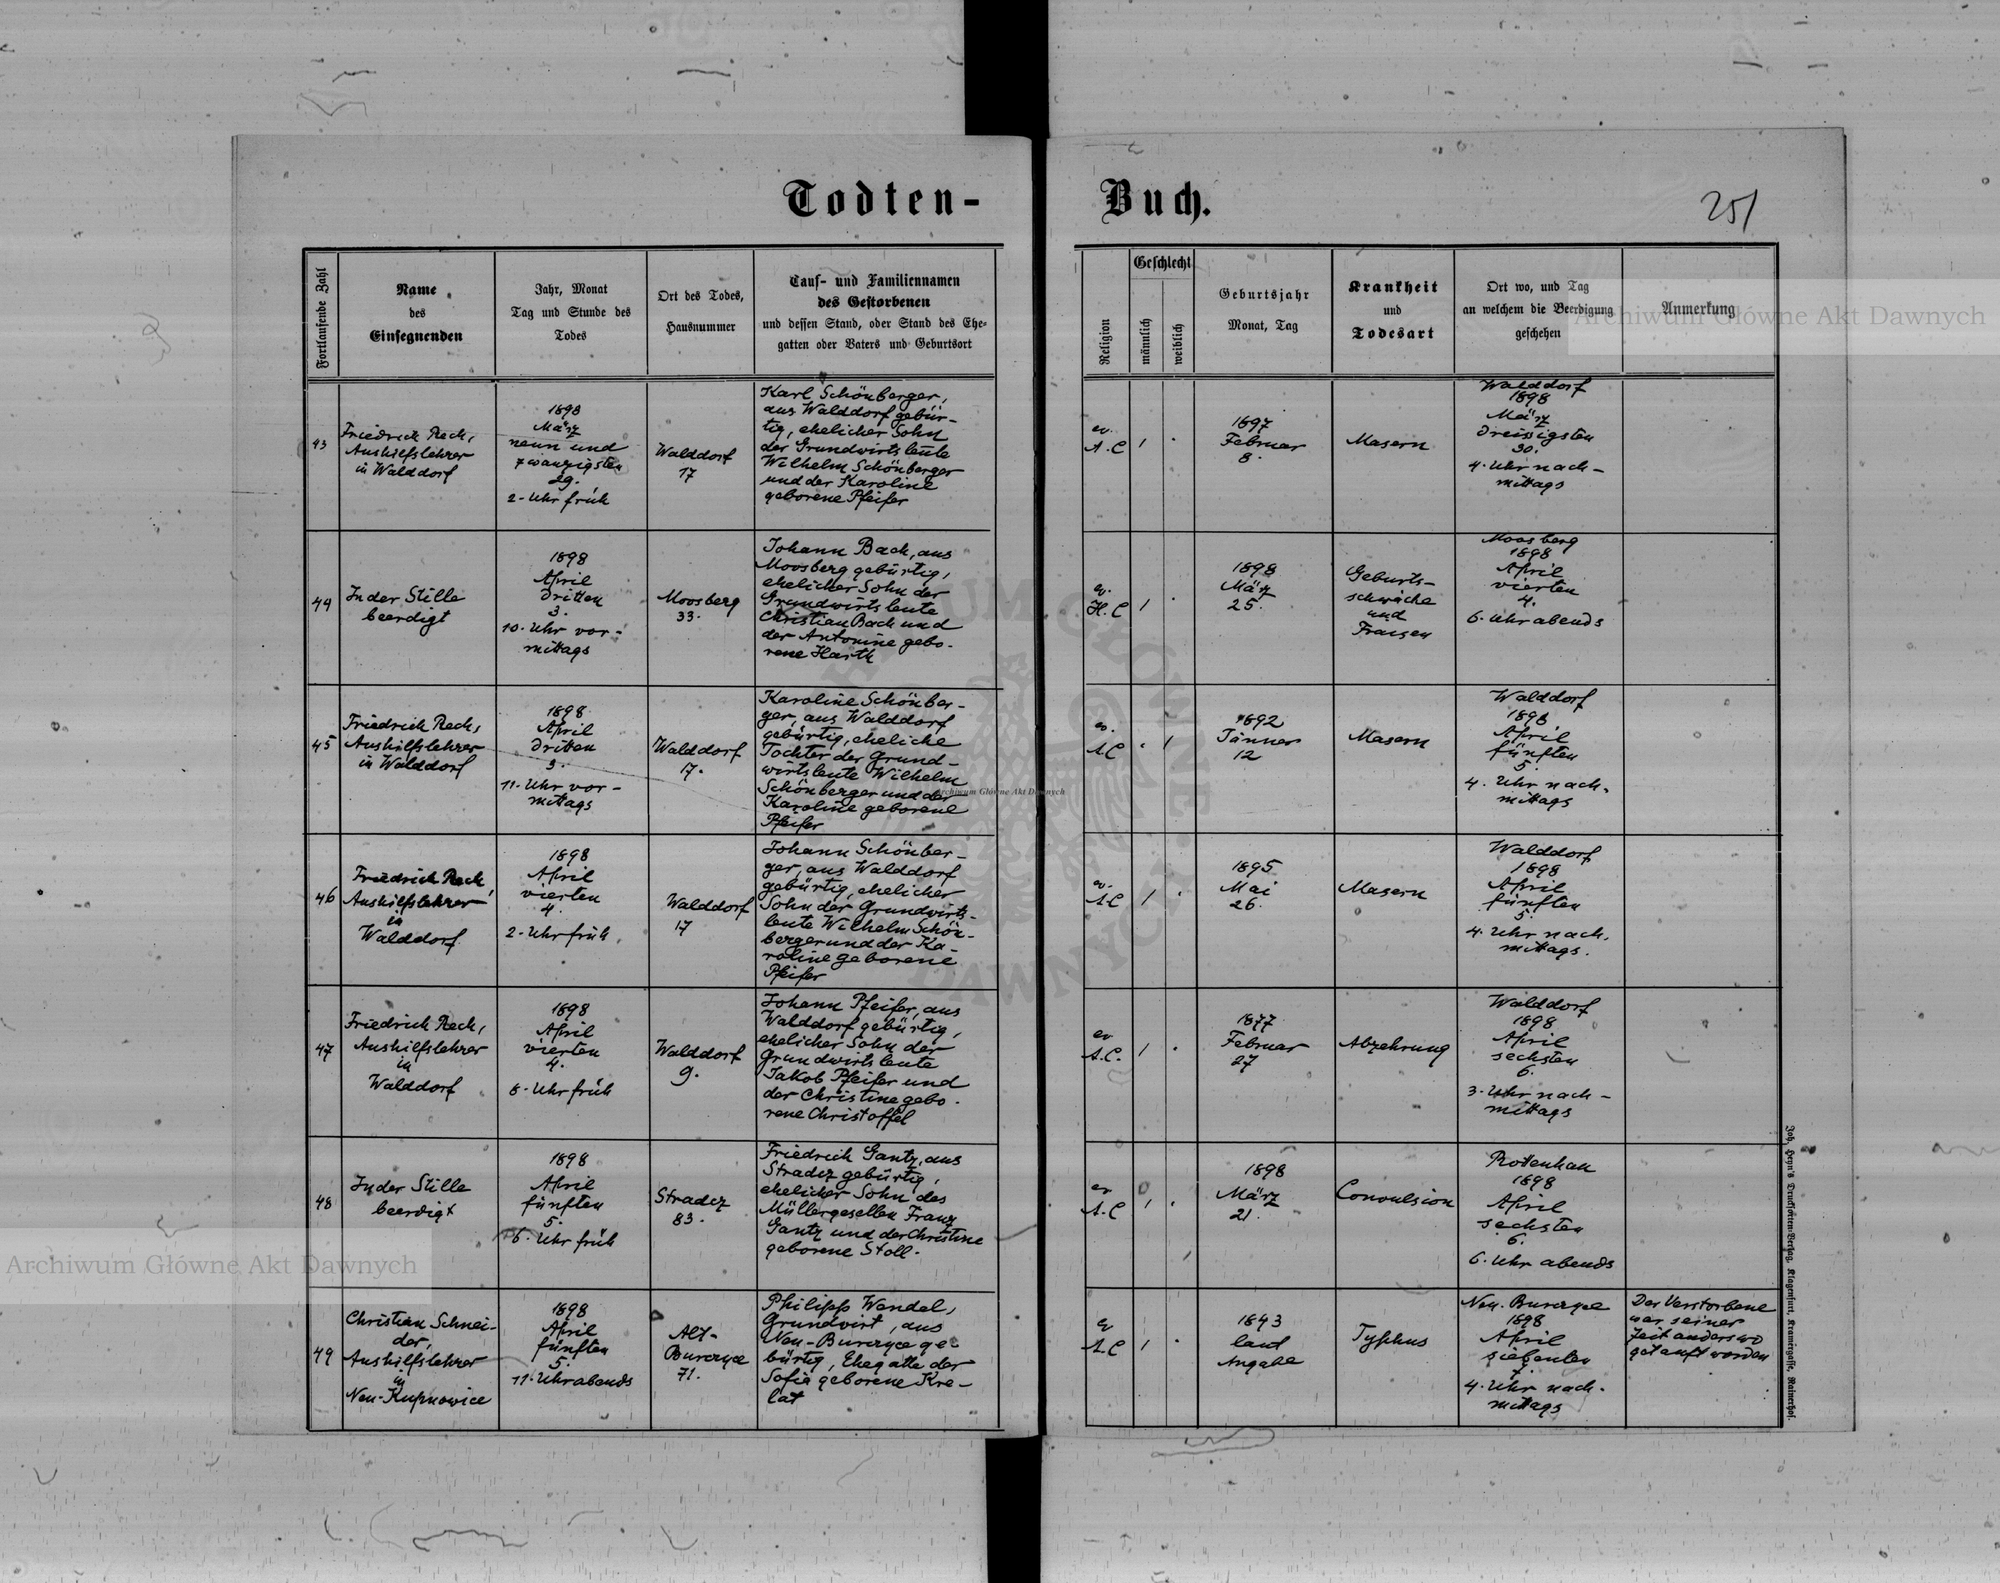 Todten-
Buch.
251
Fortlaufende Zahl
Name
des
Einsegnenden
Jahr, Monat
Tag und Stunde des
Todes
Ort des Todes,
Hausnummer
Tauf- und Familiennamen
des Gestorbenen
und dessen Stand, oder Stand des Ehe-
gatten oder Vaters und Geburtsort
Religion
Geschlecht
männlich
weiblich
Geburtsjahr
Monat, Tag
Krankheit
und
Todesart
Ort wo, und Tag
an welchem die Beerdigung
geschehen
Anmerkung
43
Friedrich Rech,
Aushilfslehrer
in Walddorf
1898
März
neun und
zwanzigsten
29.
2. Uhr früh
Walddorf
17
Karl Schönberger,
aus Walddorf gebür-
tig, ehelicher Sohn
der Grundwirtsleute
Wilhelm Schönberger
und der Karoline
geborene Pfeifer
ev.
A.C
1
1897
Februar
8.
Masern
Walddorf
1898
März
dreissigsten
30.
4. Uhr nach-
mittags
44
In der Stille
beerdigt
1898
April
dritten
3.
10. Uhr vor-
mittags
Moosberg
33.
Johann Bach, aus
Moosberg gebürtig,
ehelicher Sohn der
Grundwirtsleute
Christian Bach und
der Antonine gebo-
rene Harth
ev.
H.C
1
1898
März
25.
Geburts-
schwäche
und
Fraisen
Moosberg
1898
April
vierten
4.
6. Uhr abends
45
Friedrich Rech,
Aushilfslehrer
in Walddorf
1898
April
dritten
3.
11. Uhr vor-
mittags
Walddorf
17.
Karoline Schönber-
ger, aus Walddorf
gebürtig, eheliche
Tochter der Grund-
wirtsleute Wilhelm
Schönberger und der
Karoline geborene
Pfeifer
ev.
A.C
1
1892
Jänner
12
Masern
Walddorf
1898
April
fünften
5.
4. Uhr nach-
mittags
46
Friedrich Rech,
Aushilfslehrer
in
Walddorf
1898
April
vierten
4.
2. Uhr früh
Walddorf
17
Johann Schönber-
ger, aus Walddorf
gebürtig, ehelicher
Sohn der Grundwirts-
leute Wilhelm Schön-
berger und der Ka-
roline geborene
Pfeifer
ev.
A.C
1
1895
Mai
26.
Masern
Walddorf
1898
April
fünften
5.
4. Uhr nach-
mittags.
47
Friedrich Rech,
Aushilfslehrer
in
Walddorf
1898
April
vierten
4.
8. Uhr früh
Walddorf
9.
Johann Pfeifer, aus
Walddorf gebürtig,
ehelicher Sohn der
Grundwirtsleute
Jakob Pfeifer und
der Christine gebo-
rene Christoffel
ev
A.C.
1
1877
Februar
27
Abzehrung
Walddorf
1898
April
sechsten
6.
3. Uhr nach-
mittags
48
In der Stille
beerdigt
1898
April
fünften
5.
6. Uhr früh
Stradcz
83.
Friedrich Gantz, aus
Stradcz gebürtig,
ehelicher Sohn des
Müllergesellen Franz
Gantz und der Christine
geborene Stoll.
ev
A.C
1
1898
März
21.
Convulsion
Rottenhan
1898
April
sechsten
6.
6. Uhr abends
49
Christian Schnei-
der,
Aushilfslehrer
in
Neu-Kupnowice
1898
April
fünften
5.
11. Uhr abends
Alt-
Burczyce
71.
Philipp Wendel,
Grundwirt, aus
Neu-Burczyce ge-
bürtig, Ehegatte der
Sofia geborene Kre-
lat
ev
A.C
1
1843
laut
Angabe
Typhus
Neu-Burczyce
1898
April
siebenten
7.
4. Uhr nach-
mittags
Der Verstorbene
war seiner
Zeit anderswo
getauft worden
Joh. Heyn's Drucksorten-Verlag, Klagenfurt, Kramergasse, Rainerhof.
Archiwum Główne Akt Dawnych
Archiwum Główne Akt Dawnych
Archiwum Główne Akt Dawnych